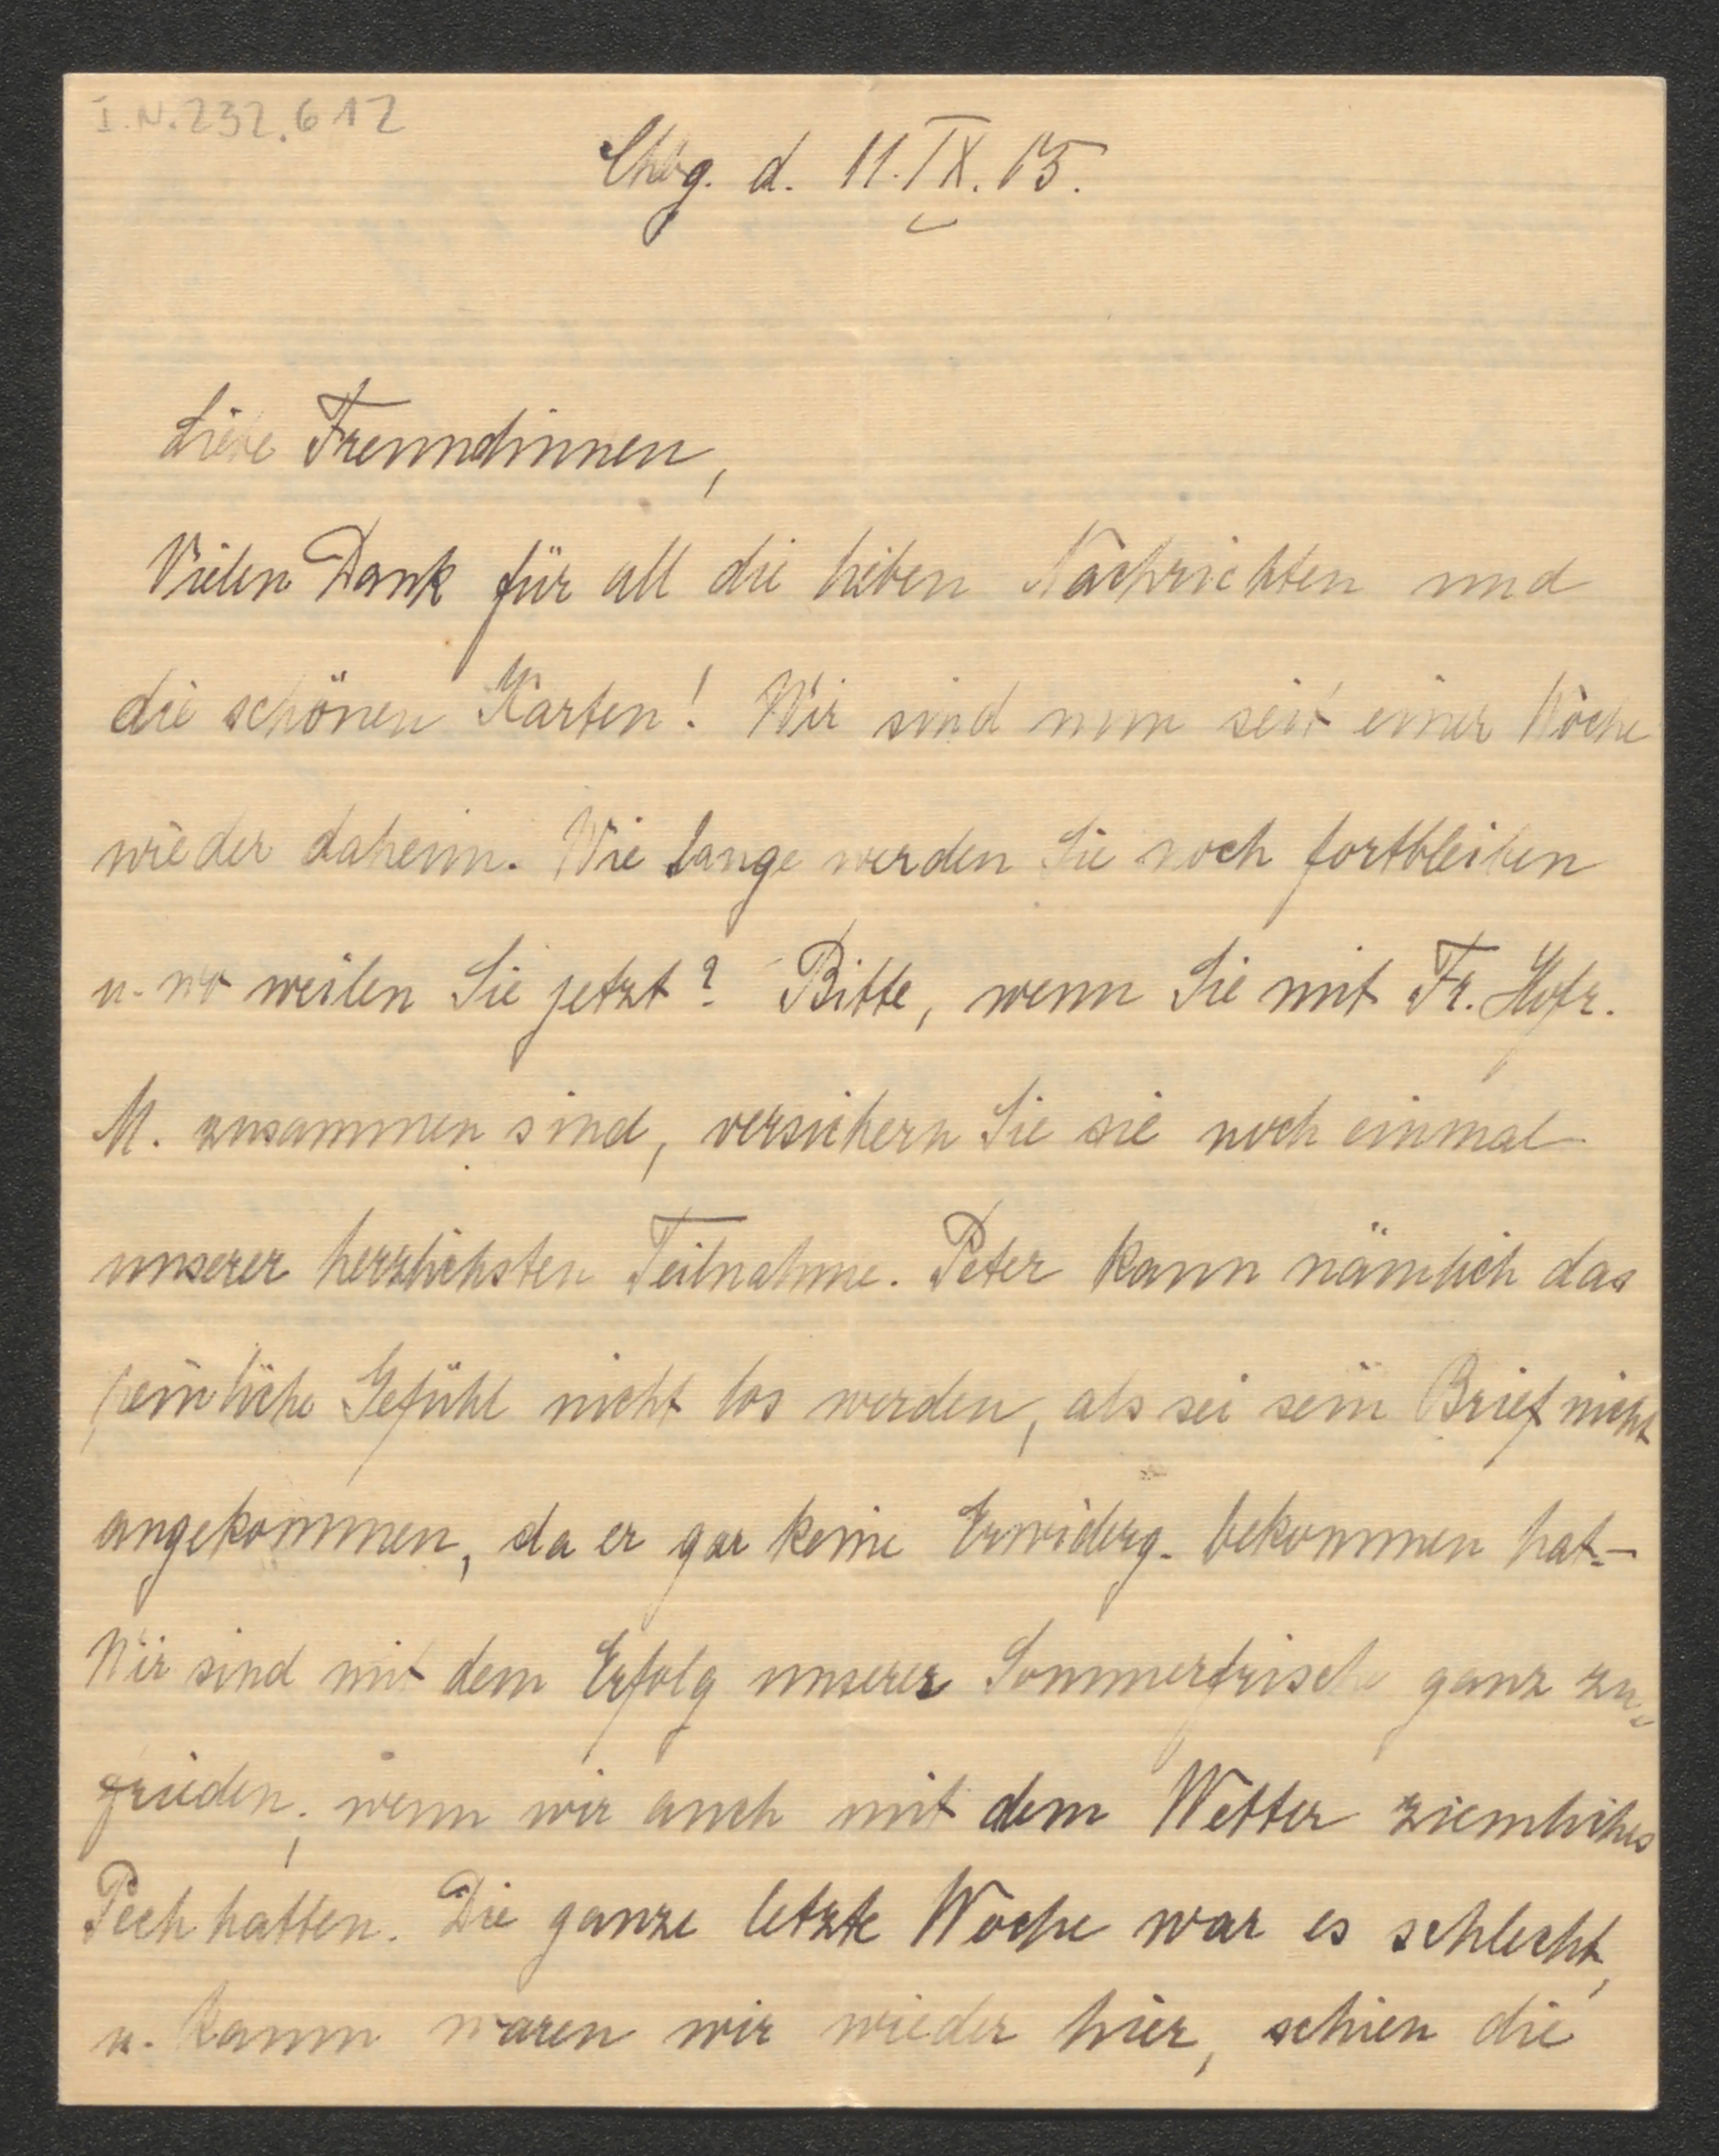 I.N. 232.612
Chbg. d. 11. IX. 15.
Liebe Freundinnen,
Vielen Dank für all die lieben Nachrichten und
die schönen Karten! Wir sind nun seit einer Woche
wieder daheim. Wie lange werden Sie noch fortbleiben
u. wo weilen Sie jetzt? Bitte, wenn Sie mit Fr. Hofr.
M. zusammen sind, versichern Sie sie noch einmal
unserer herzlichsten Teilnahme. Peter kann nämlich das
peinliche Gefühl nicht los werden, als sei sein Brief nicht
angekommen, da er gar keine Erwiderg. bekommen hat. –
Wir sind mit dem Erfolg unserer Sommerfrische ganz zu-
frieden, wenn wir auch mit dem Wetter ziemliches
Pech hatten. Die ganze letzte Woche war es schlecht,
u. kaum waren wir wieder hier, schien die